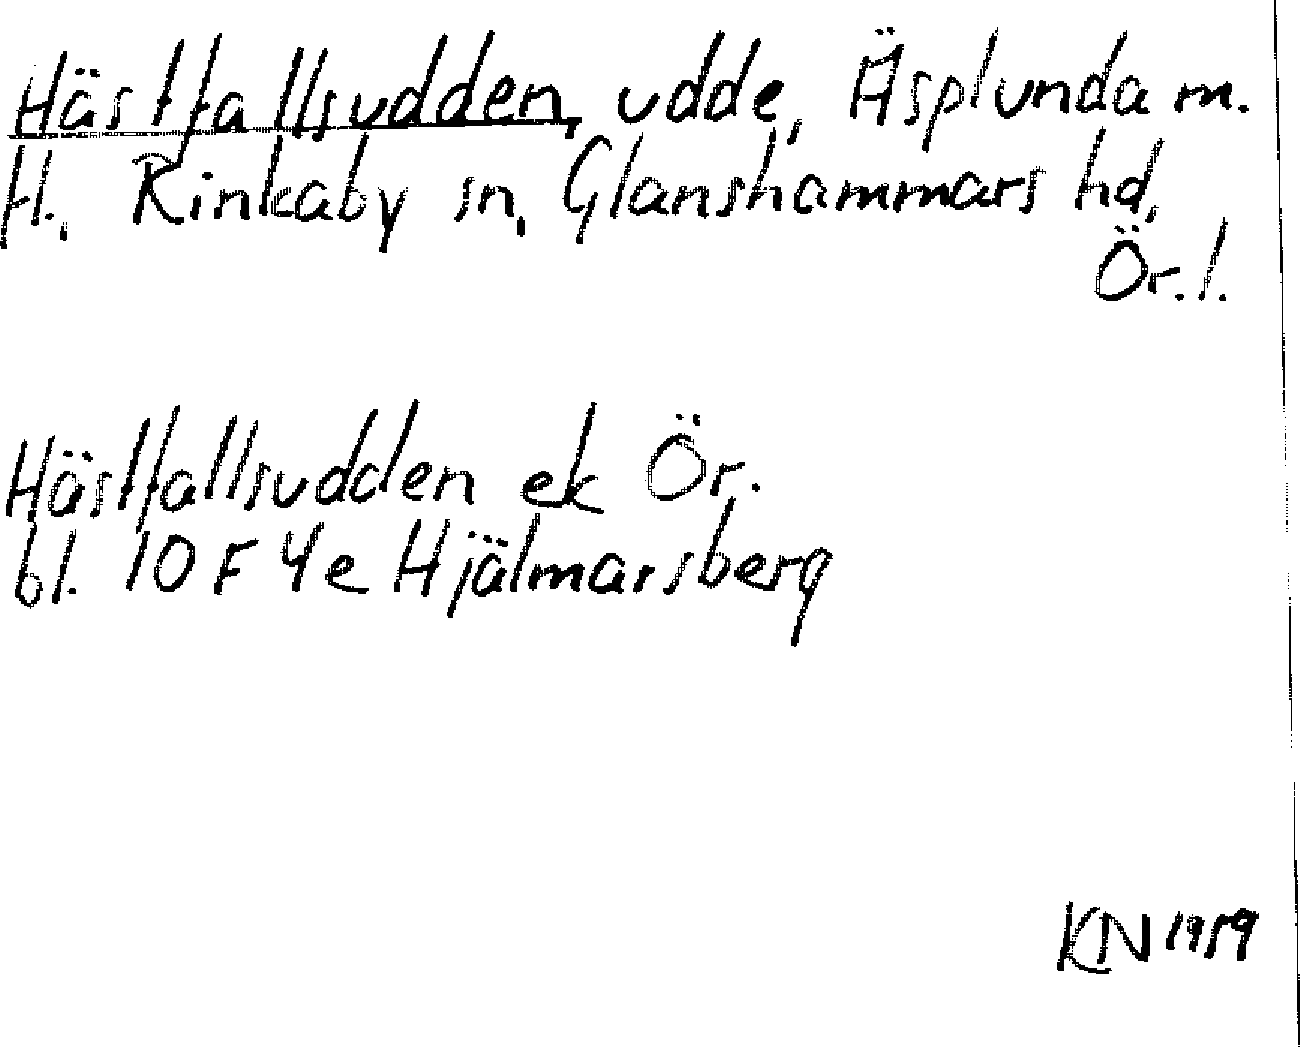 Hästfallsudden, udde, Äsplunda m.
fl., Rinkaby sn, Glanshammars hd,
Ör. l.
Hästfallsudden ek Ör.
bl. 10 F 4e Hjälmarsberg
KN 1959